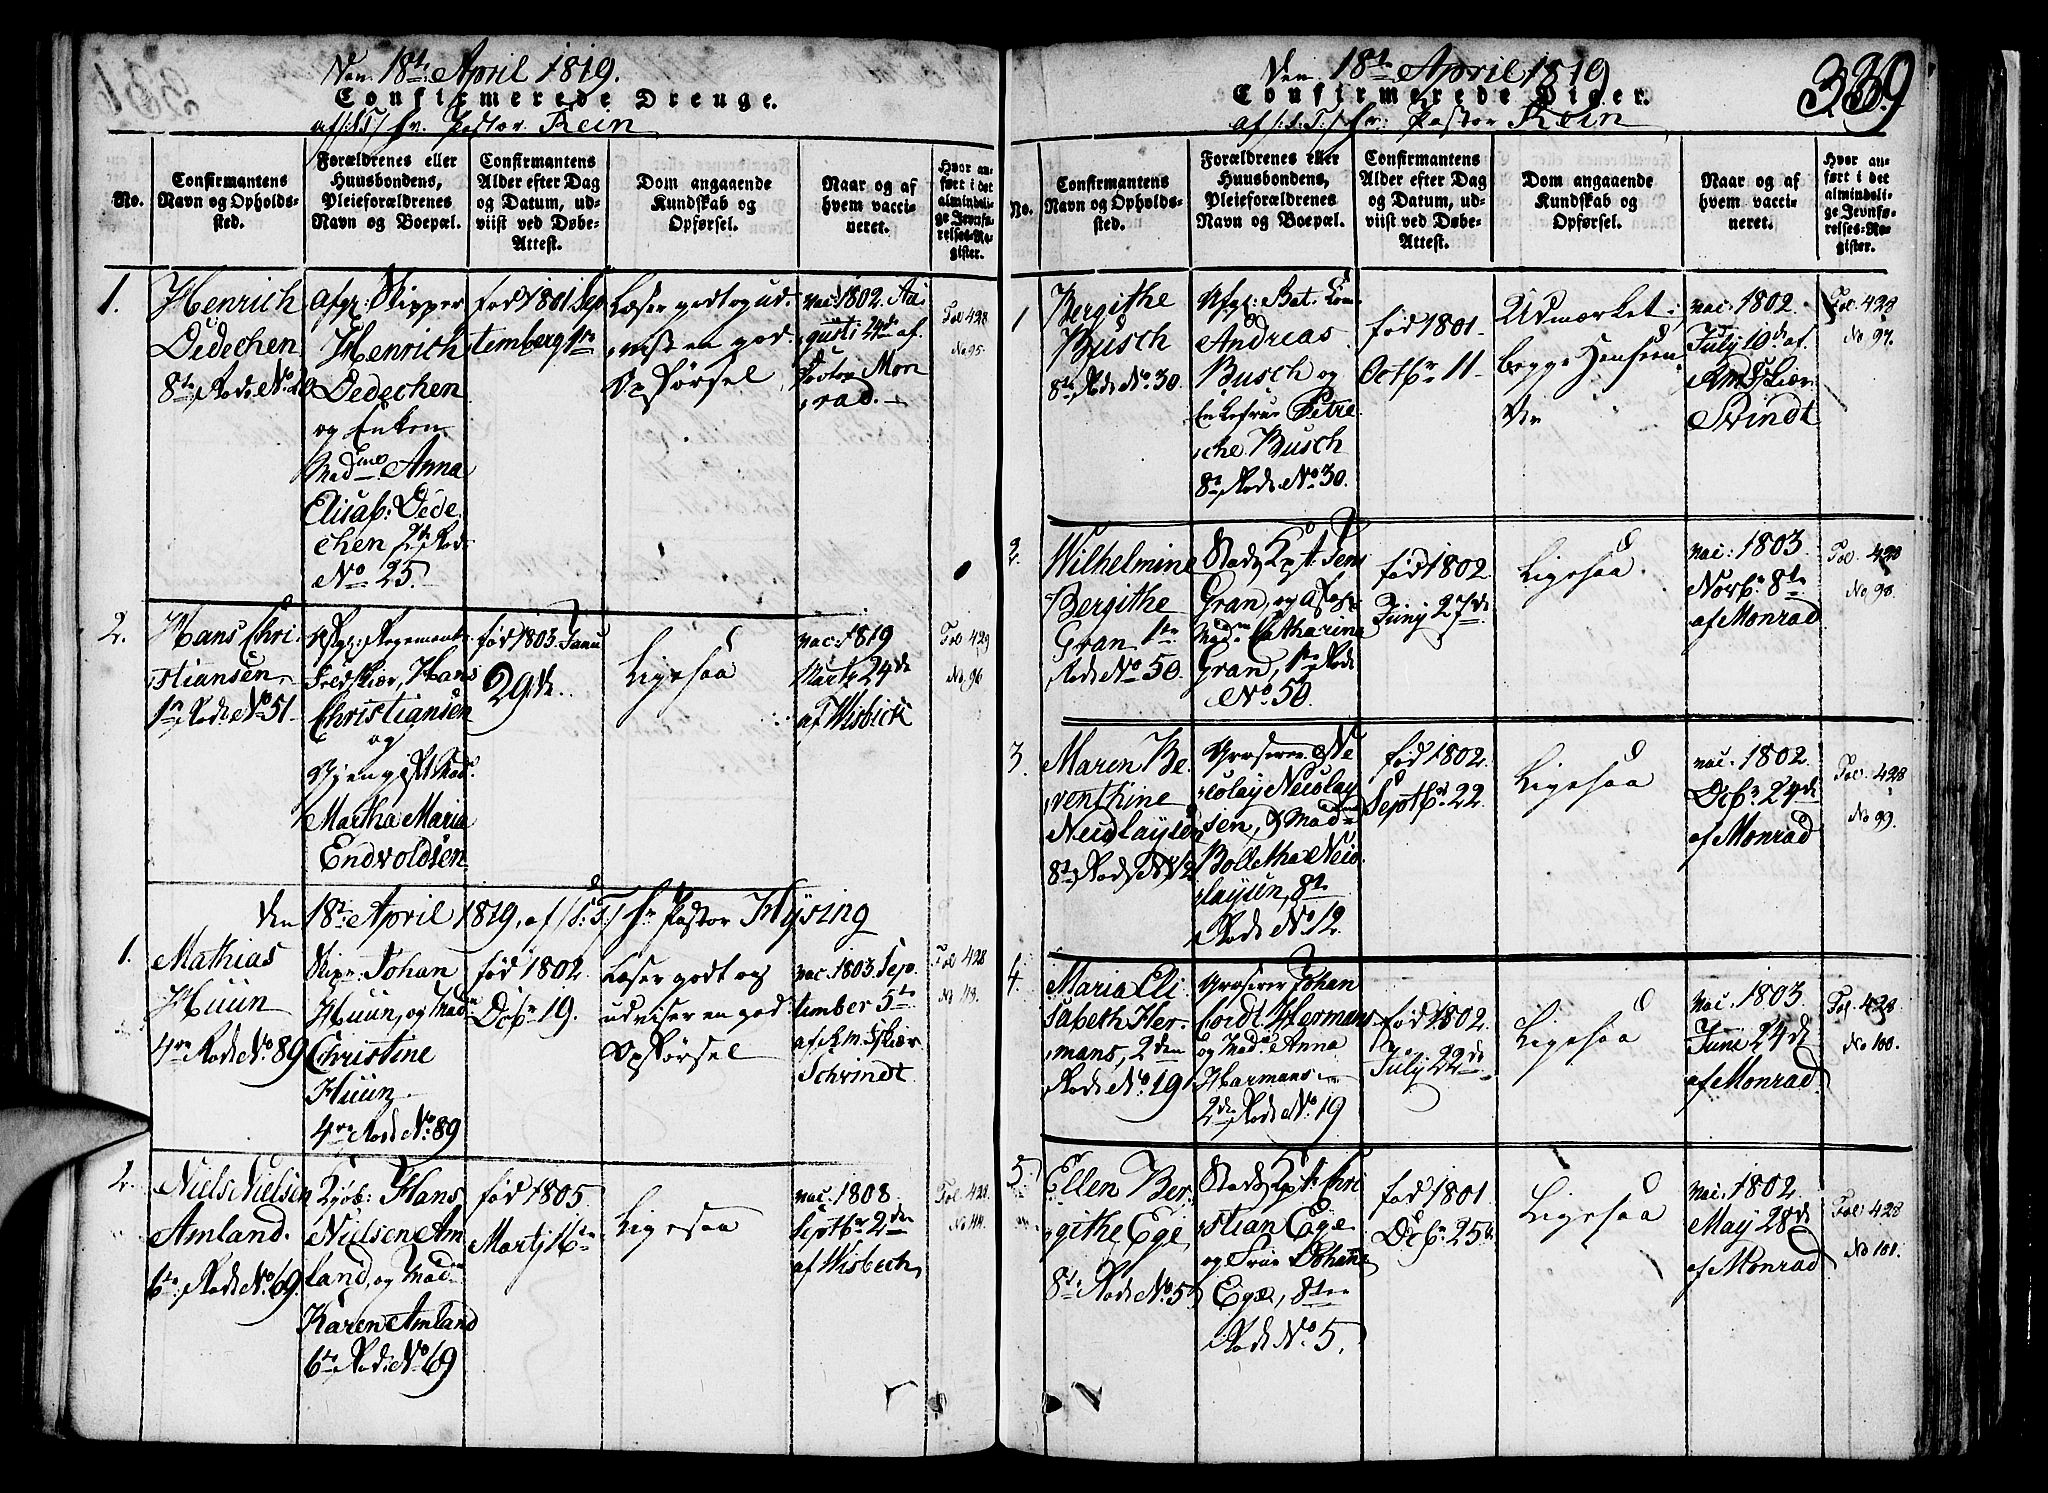 Den 18de April 1819.
Confirmerede Drenge.
af /:S:T:/ Hr. Pastor Rein
No.
Confirmantens
Navn og Opholds-
sted.
Forældrenes eller
Huusbondens,
Pleieforældrenes
Navn og Boepæl.
Confirmantens
Alder efter Dag
og Datum, ud-
viist ved Døbe-
Attest.
Dom angaaende
Kundskab og
Opførsel.
Naar og af
hvem vacci-
neret.
Hvor an-
ført i det
almindeli-
ge Jevnfø-
relses-Re-
gister.
1.
Henrich
Dedechen
8de Rode No 20
Afgr: Skipper
Henrich
Dedechen
og Enken
Madme Anna
Elisab: Dede
chen 2de Rode
No 25.
fød 1801 Sep
temberg 1re
Læser godt og ud-
viist en god
Opførsel
vac: 1802. Au
gusti 24de af
Pastor Mon
rad.
Fol 428
No 95.
2.
Hans Chri
stiansen
1te Rode No 51
Christiansen
og
Martha Maria
Endvoldsen
fød 1803 Janu
29de
Ligesaa
vac: 1819
Marts 24de
af Wisbeck
Fol 429
No 96
Den 18de April 1819, af /:S:T:/ Hr Pastor Hysing
1.
Mathias
Huun
4re Rode No 89
Skipr Johan
Huun, og Mad.
Christine
Huun
4re Rode No. 89
fød 1802.
Dcbr 19.
Læser godt og
udviser en god
Opførsel
vac: 1803 Sep
tember 5te
af Amtskiær
Schvindt
Fol 428
No 43.
2.
Niels Nielsen
Amland.
6te Rode No. 69.
Kjøb: Hans
Nielsen Am
land, og Mad.
Karen Amland
6te Rode No 69
fød 1805.
Martj 16de
Ligesaa
vac: 1808
Septbr 2den
af Wisbech
Fol 428
No 44.
Den 18de April 1819
Confirmerede Piger.
339
af /:S:T:/ Hr: Pastor Rein
No.
Confirmantens
Navn og Opholds-
sted.
Forældrenes eller
Huusbondens,
Pleieforældrenes
Navn og Boepæl.
Confirmantens
Alder efter Dag
og Datum, ud-
viist ved Døbe-
Attest.
Dom angaaende
Kundskab og
Opførsel.
Naar og af
hvem vacci-
neret.
Hvor an-
ført i det
almindeli-
ge Jevnfø-
relses-Re-
gister.
1
Bergithe
Busch
8de Rode No. 30.
Afgl: Bat. Com
Andreas
Busch og
Enkefrue Petre
che Busch
8de Rode No 30.
fød 1801
Octbr 11
Udmærket i
begge Henseen
der
vac: 1802.
July 10de af
Amtskiær
Svindt
Fol. 428
No 97.
2.
Wilhelmine
Bergithe
Gran 1te
Rode No 50.
Stads Cpt. Jens
Gran, og
Catharina
Gran, 1te Rode
No. 50.
fød 1802.
Junj 27de
Ligesaa
vac: 1803.
Novbr 8de
af Monrad
Fol. 428
No 98.
3.
Maren Be
renthine
Nicolaysen
8de Rode No 12
Groserer Ni
colay Nicolay
sen, & Madme
Bolletha Nico
laysen, 8de
Rode No. 12.
fød 1802.
Septbr 22.
Ligesaa
vac: 1802.
Dcbr 24de
af Monrad
Fol. 428
No 99.
4.
Maria Eli
sabeth Her-
mans, 2den
Rode No 19
Groserer Johan
Cordt Hermans
og Mad. Anna
Harmans
2den Rode No. 19
fød 1802.
July 22de
Ligesaa
vac. 1803
Juni 24de
af Monrad
Fol. 428
No 100.
5.
Ellen Ber
githe Ege
8de Rode No. 5
Stads Cpt. Chri
stian Ege
og Frue Johanne
Ege, 8de
Rode No. 5.
fød 1801
Dcbr. 25de
Ligesaa
vac: 1802.
May 28de
af Monrad
Fol 428
No 101.